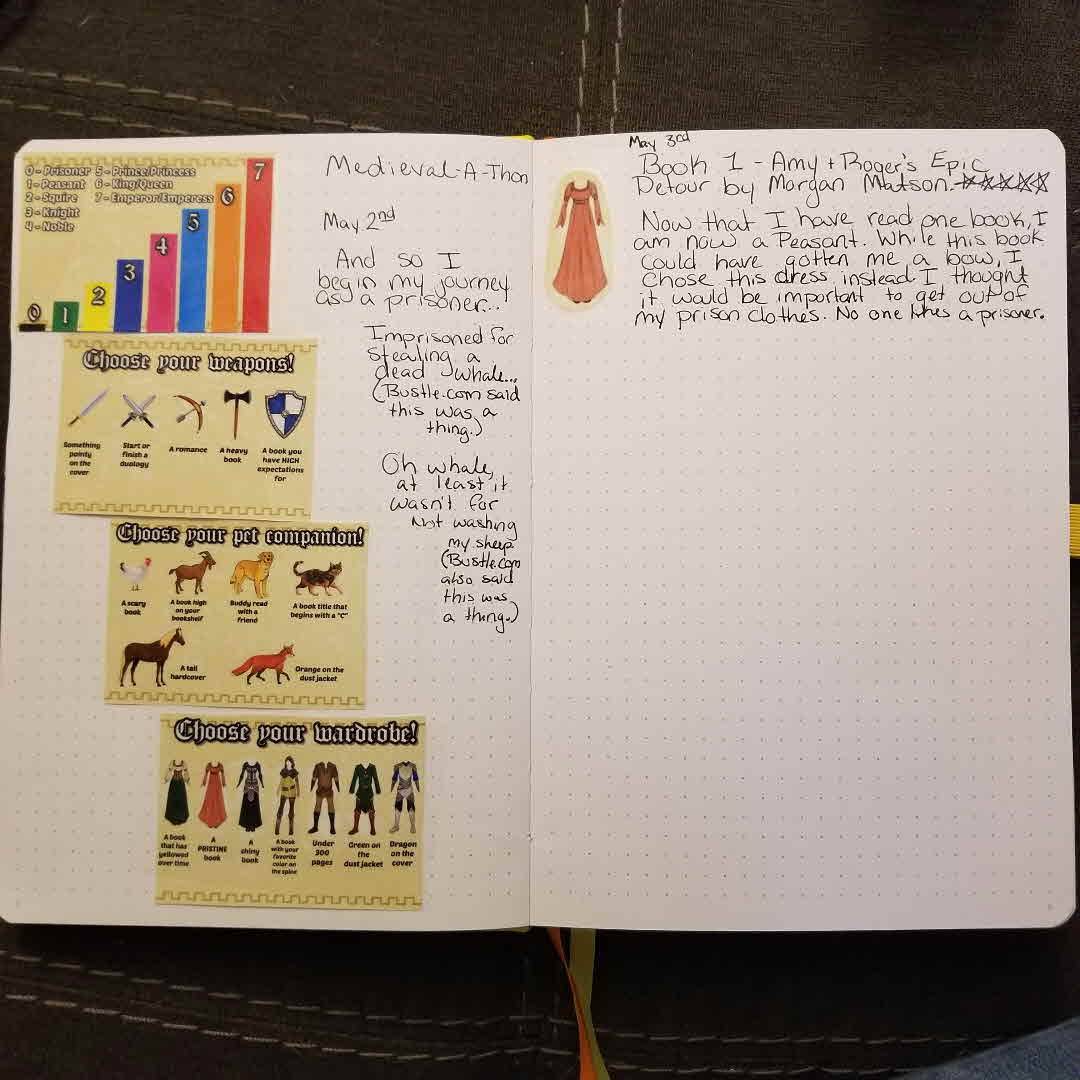 0 - Prisoner 5 - Prince/Princess
1 - Peasant 6 - King/Queen
2 - Squire 7 - Emperor/Emperess
3 - Knight
4 - Noble
0
1
2
3
4
5
6
7
Choose your weapons!
Something
pointy
on the
cover
Start or
finish a
duology
A romance
A heavy
book
A book you
have HIGH
expectations
for
Choose your pet companion!
A scary
book
A book high
on your
bookshelf
Buddy read
with a
friend
A book title that
begins with a "C"
A tall
hardcover
Orange on the
dust jacket
Choose your wardrobe!
A book
that has
yellowed
over time
A
PRISTINE
book
A
shiny
book
A book
with your
favorite
color on
the spine
Under
300
pages
Green on
the
dust jacket
Dragon
on the
cover
Medieval-A-Thon
May 2nd
And so I
begin my journey
as a prisoner...
Imprisoned for
stealing a
dead whale...
(Bustle.com said
this was a
thing.)
Oh whale,
at least it
wasn't for
not washing
my sheep
(Bustle.com
also said
this was
a thing.)
May 3rd
Book 1 - Amy + Roger's Epic
Detour by Morgan Matson. ★★★★★
Now that I have read one book, I
am now a Peasant. While this book
could have gotten me a bow, I
chose this dress instead. I thought
it would be important to get out of
my prison clothes. No one likes a prisoner.